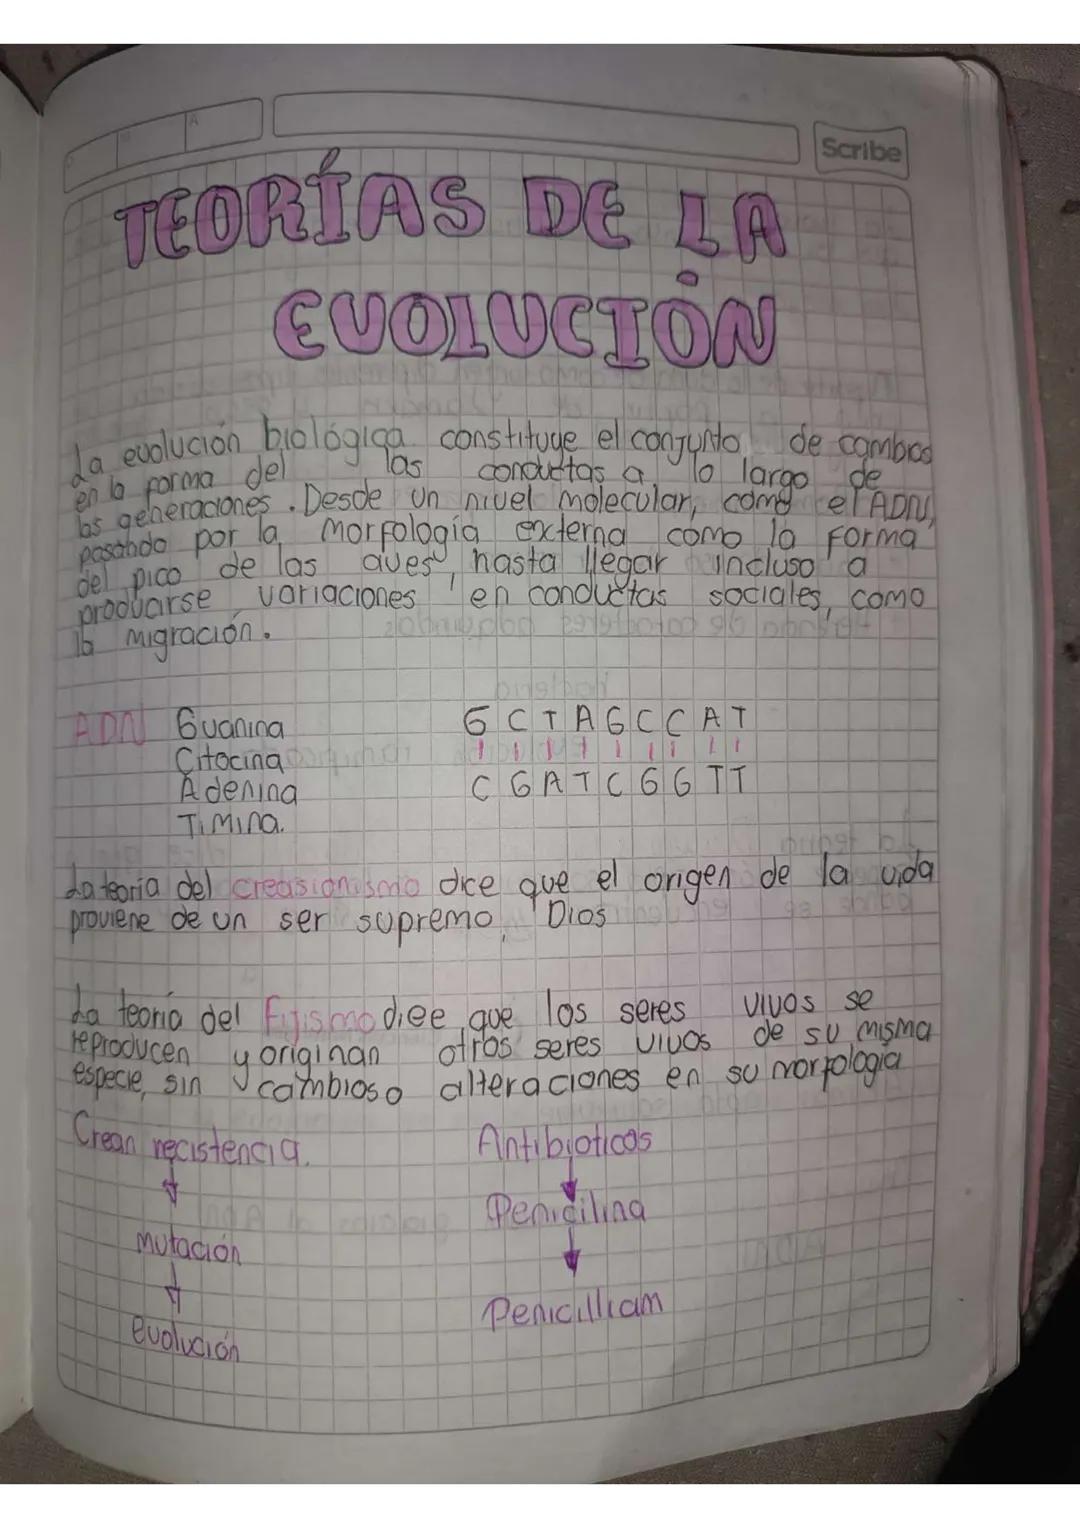 Scribe
TEORÍAS DE LA
EVOLUCIÓN
La evolución biológica constituye el conjunto de cambios
en la forma del las conductas a lo largo de
las generaciones. Desde un nivel molecular, como el ADN,
pasando por la morfología externa como la forma
del pico de las aves, hasta llegar incluso a
producirse variaciones en conductas sociales, como
la migración.
ADN Guanina G C T A G C C A T
Citocina
Adenina C G A T C G G T T
Timina.
La teoría del creasionismo dice que el origen de la vida
proviene de un ser supremo, Dios
La teoría del Fijismo dice que los seres vivos se
reproducen y originan otros seres vivos de su misma
especie, sin cambios o alteraciones en su morfología
Crean recistencia. Antibioticos
Penicilina
mutación
Penicilliam
evolución